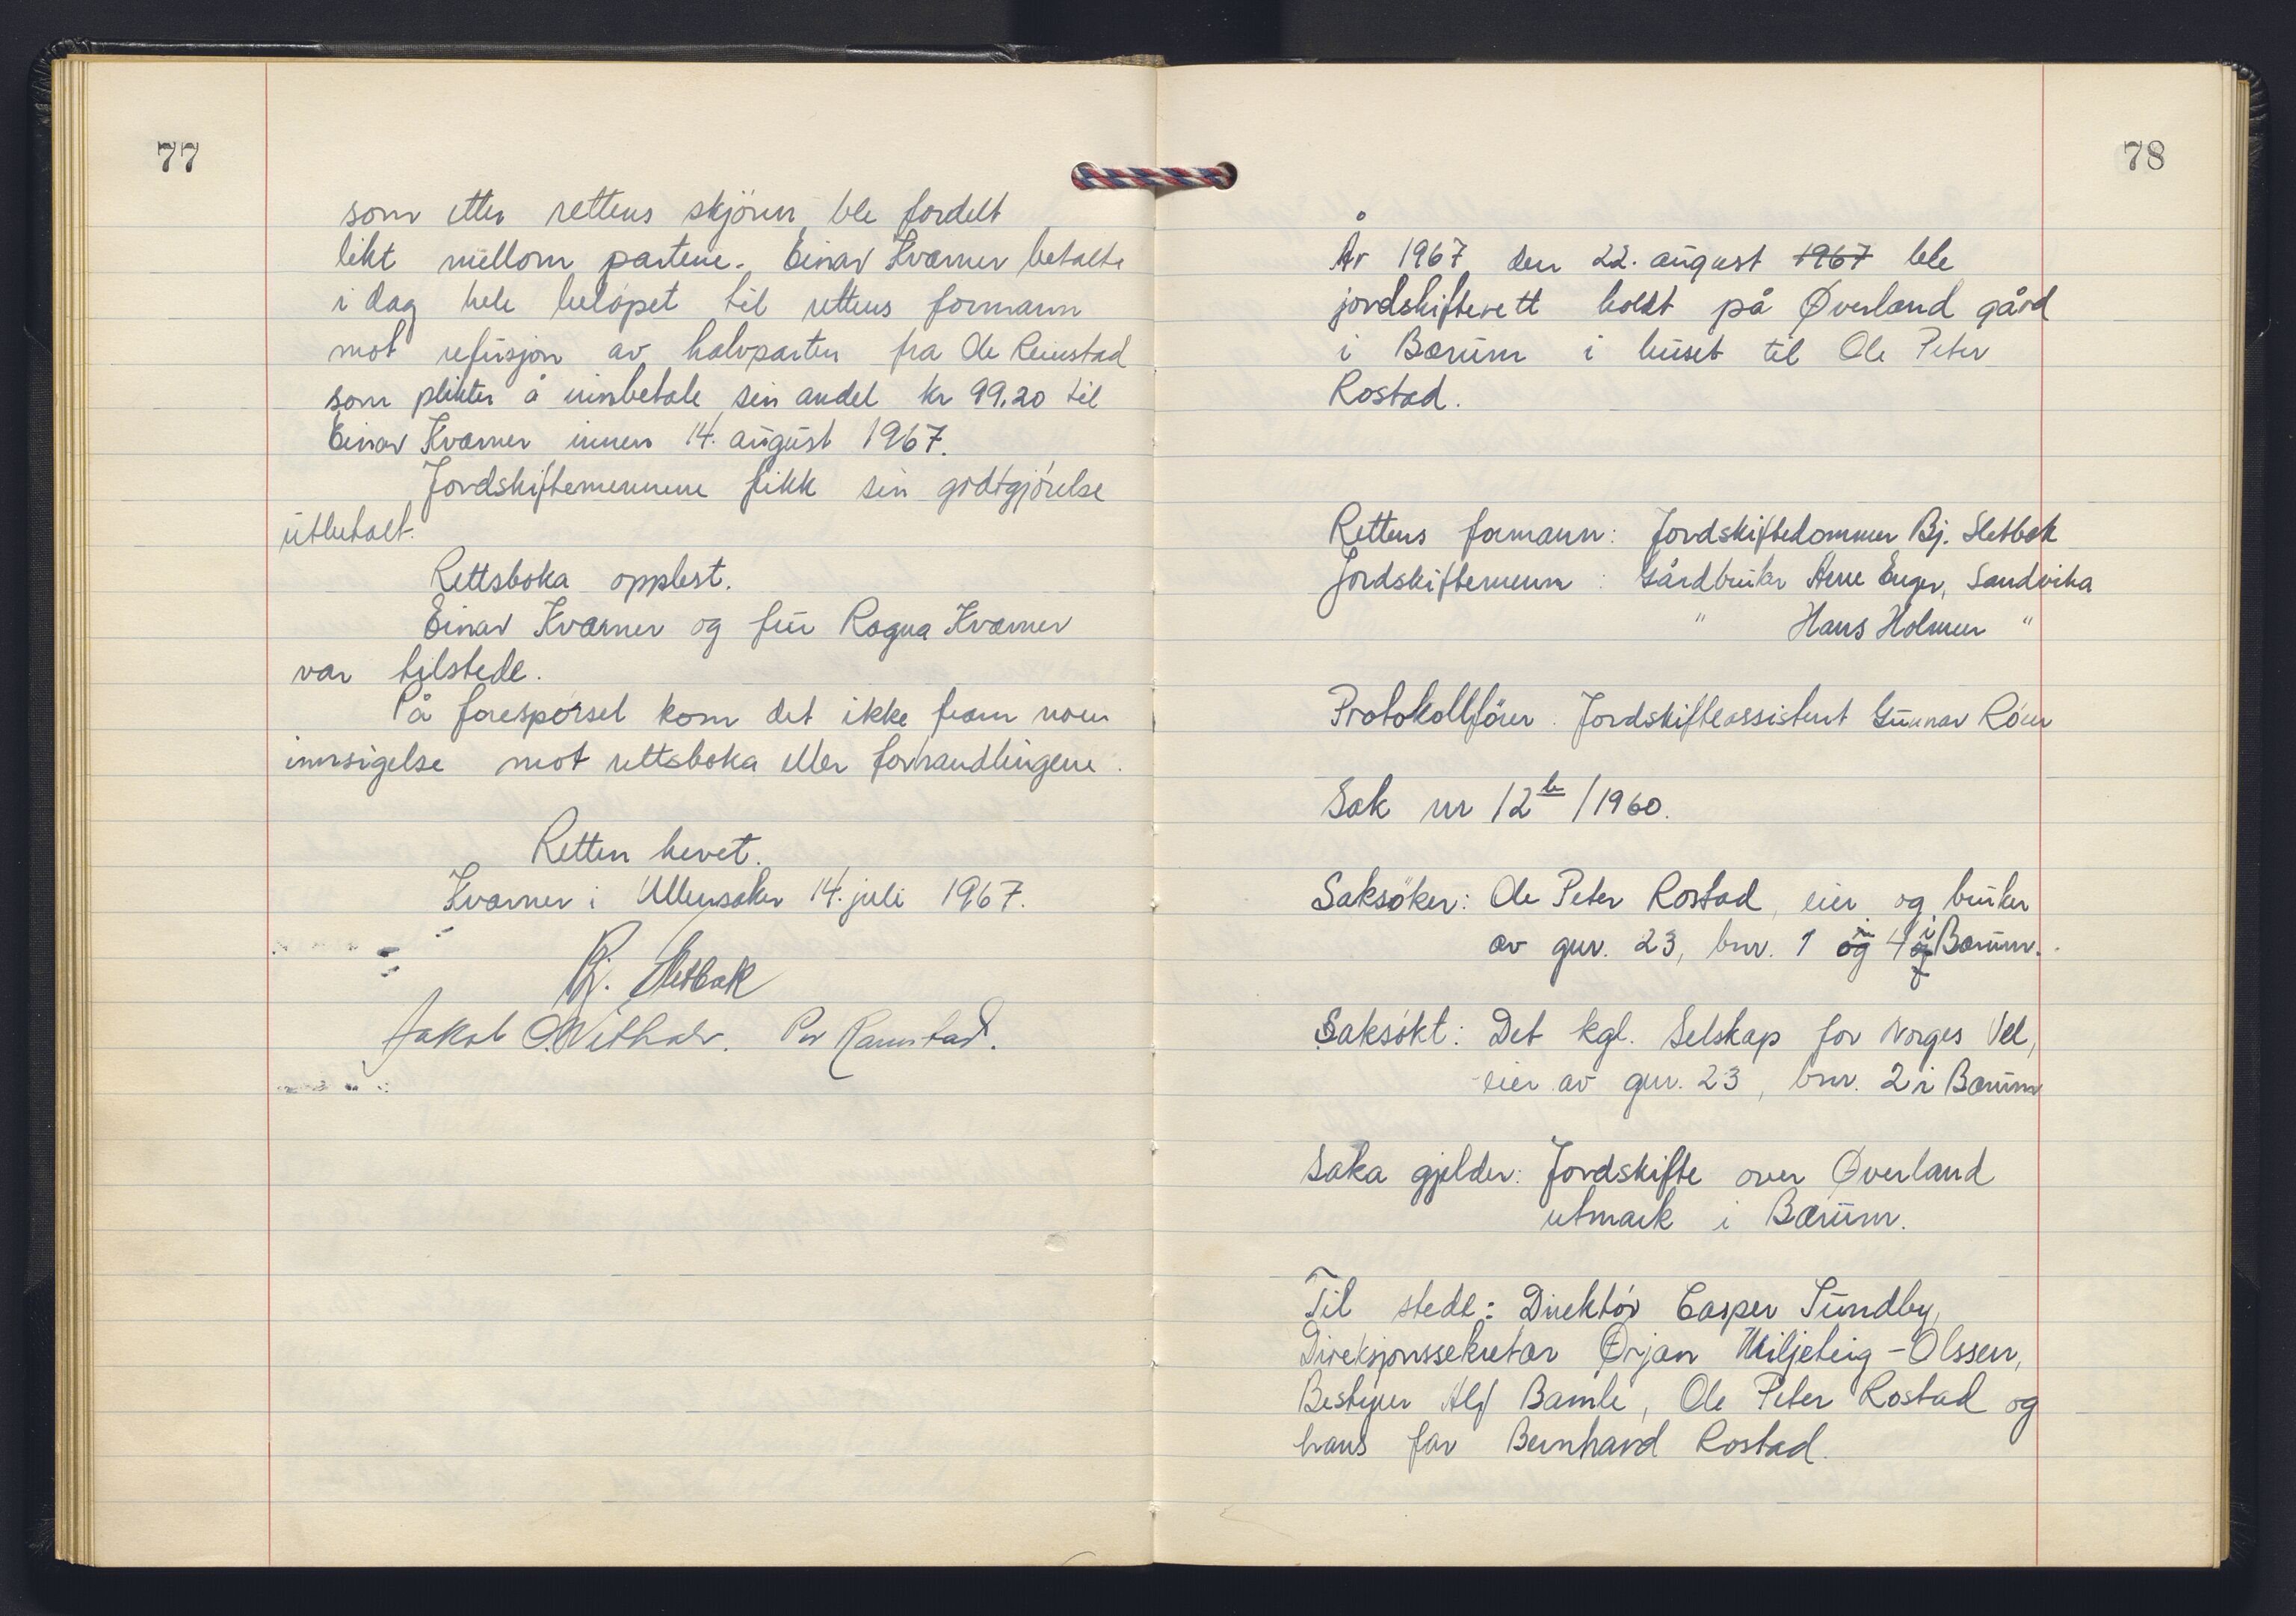 77
som etter rettens skjönn ble fordelt
likt mellom partene. Einar Kværner betalte
i dag hele belöpet til rettens formann
mot refusjon av halvparten fra Ole Reinstad
som plikter å innbetale sin andel kr 99.20 til
Einar Kværner innen 14. august 1967.
Jordskiftemennene fikk sin godtgjörelse
utbetalt.
Rettsboka opplest.
Einar Kværner og fru Ragna Kværner
var tilstede.
På forespörsel kom det ikke fram noen
innsigelse mot rettsboka eller forhandlingene.
Retten hevet.
Kværner i Ullensaker 14. juli 1967.
Bj. Sletbak
Jakob O. Per Ramstad.
78
År 1967 den 22. august 1967 ble
jordskifterett holdt på Øverland gård
i Bærum i huset til Ole Peter
Rostad.
Rettens formann: Jordskiftedommer Bj. Sletbak
Jordskiftemenn: Gårdbruker Arne Enger, Sandvika
" Hans Holmen "
Protokollförer. Jordskifteassistent Gunnar Röen
Sak nr 12 b /1960.
Saksöker: Ole Peter Rostad, eier og bruker
av gnr. 23, bnr. 1 og 4 i Bærum.
Saksökt: Det kgl. Selskap for Norges Vel,
eier av gnr. 23, bnr. 2 i Bærum
Saka gjelder: Jordskifte over Øverland
utmark i Bærum.
Til stede: Direktör Casper Sundby,
Direksjonssekretær Ørjan Miljeteig-Olssen,
Bestyrer Alf Bamle, Ole Peter Rostad og
hans far Bernhard Rostad.